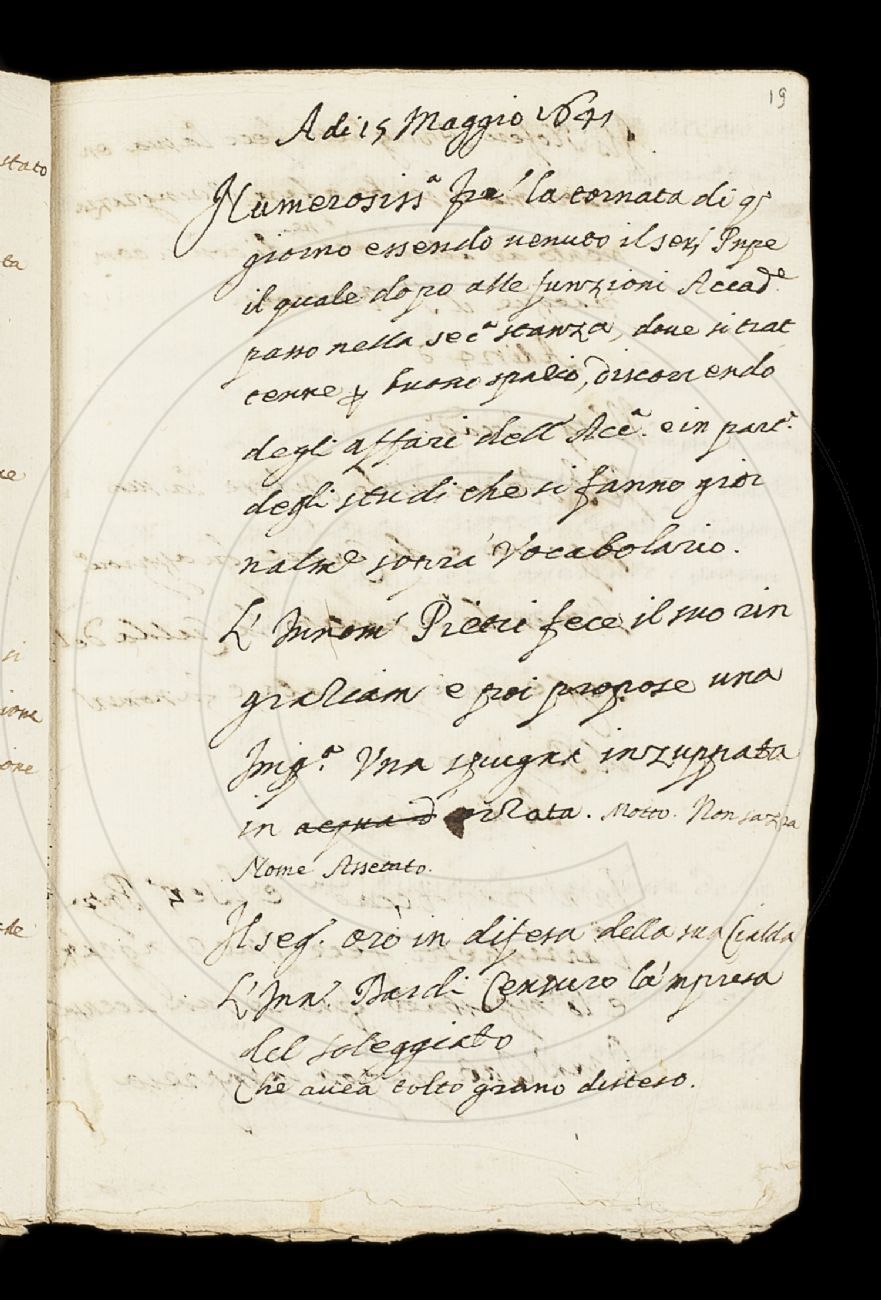 19
A di 15 Maggio 1641
Numerosiss.ª fu la tornata di q.º
giorno essendo uenuto il Ser.º Pnpe
il quale dopo alle funzioni Accad.e
passo nella sec.ª stanza, doue si trat
tenne p buono spazio, discorrendo
degli affari dell' Acc.ª e in part.e
degli studi che si fanno gior
nalm.e sopra 'l Vocabolario.
L' Innom.º Pietri fece il suo rin
graziam.º e poi propose una
Impr.ª Vna spugna inzuppata
in acqua d' . Motto. Non sazia
Nome Assetato.
Il seg.º orò in difesa della sua Cialda
L' Inn.º Bardi Censuro la 'mpresa
del soleggiato
Che auea tolto grano disteso.
stato
ta
si
ione
one
che